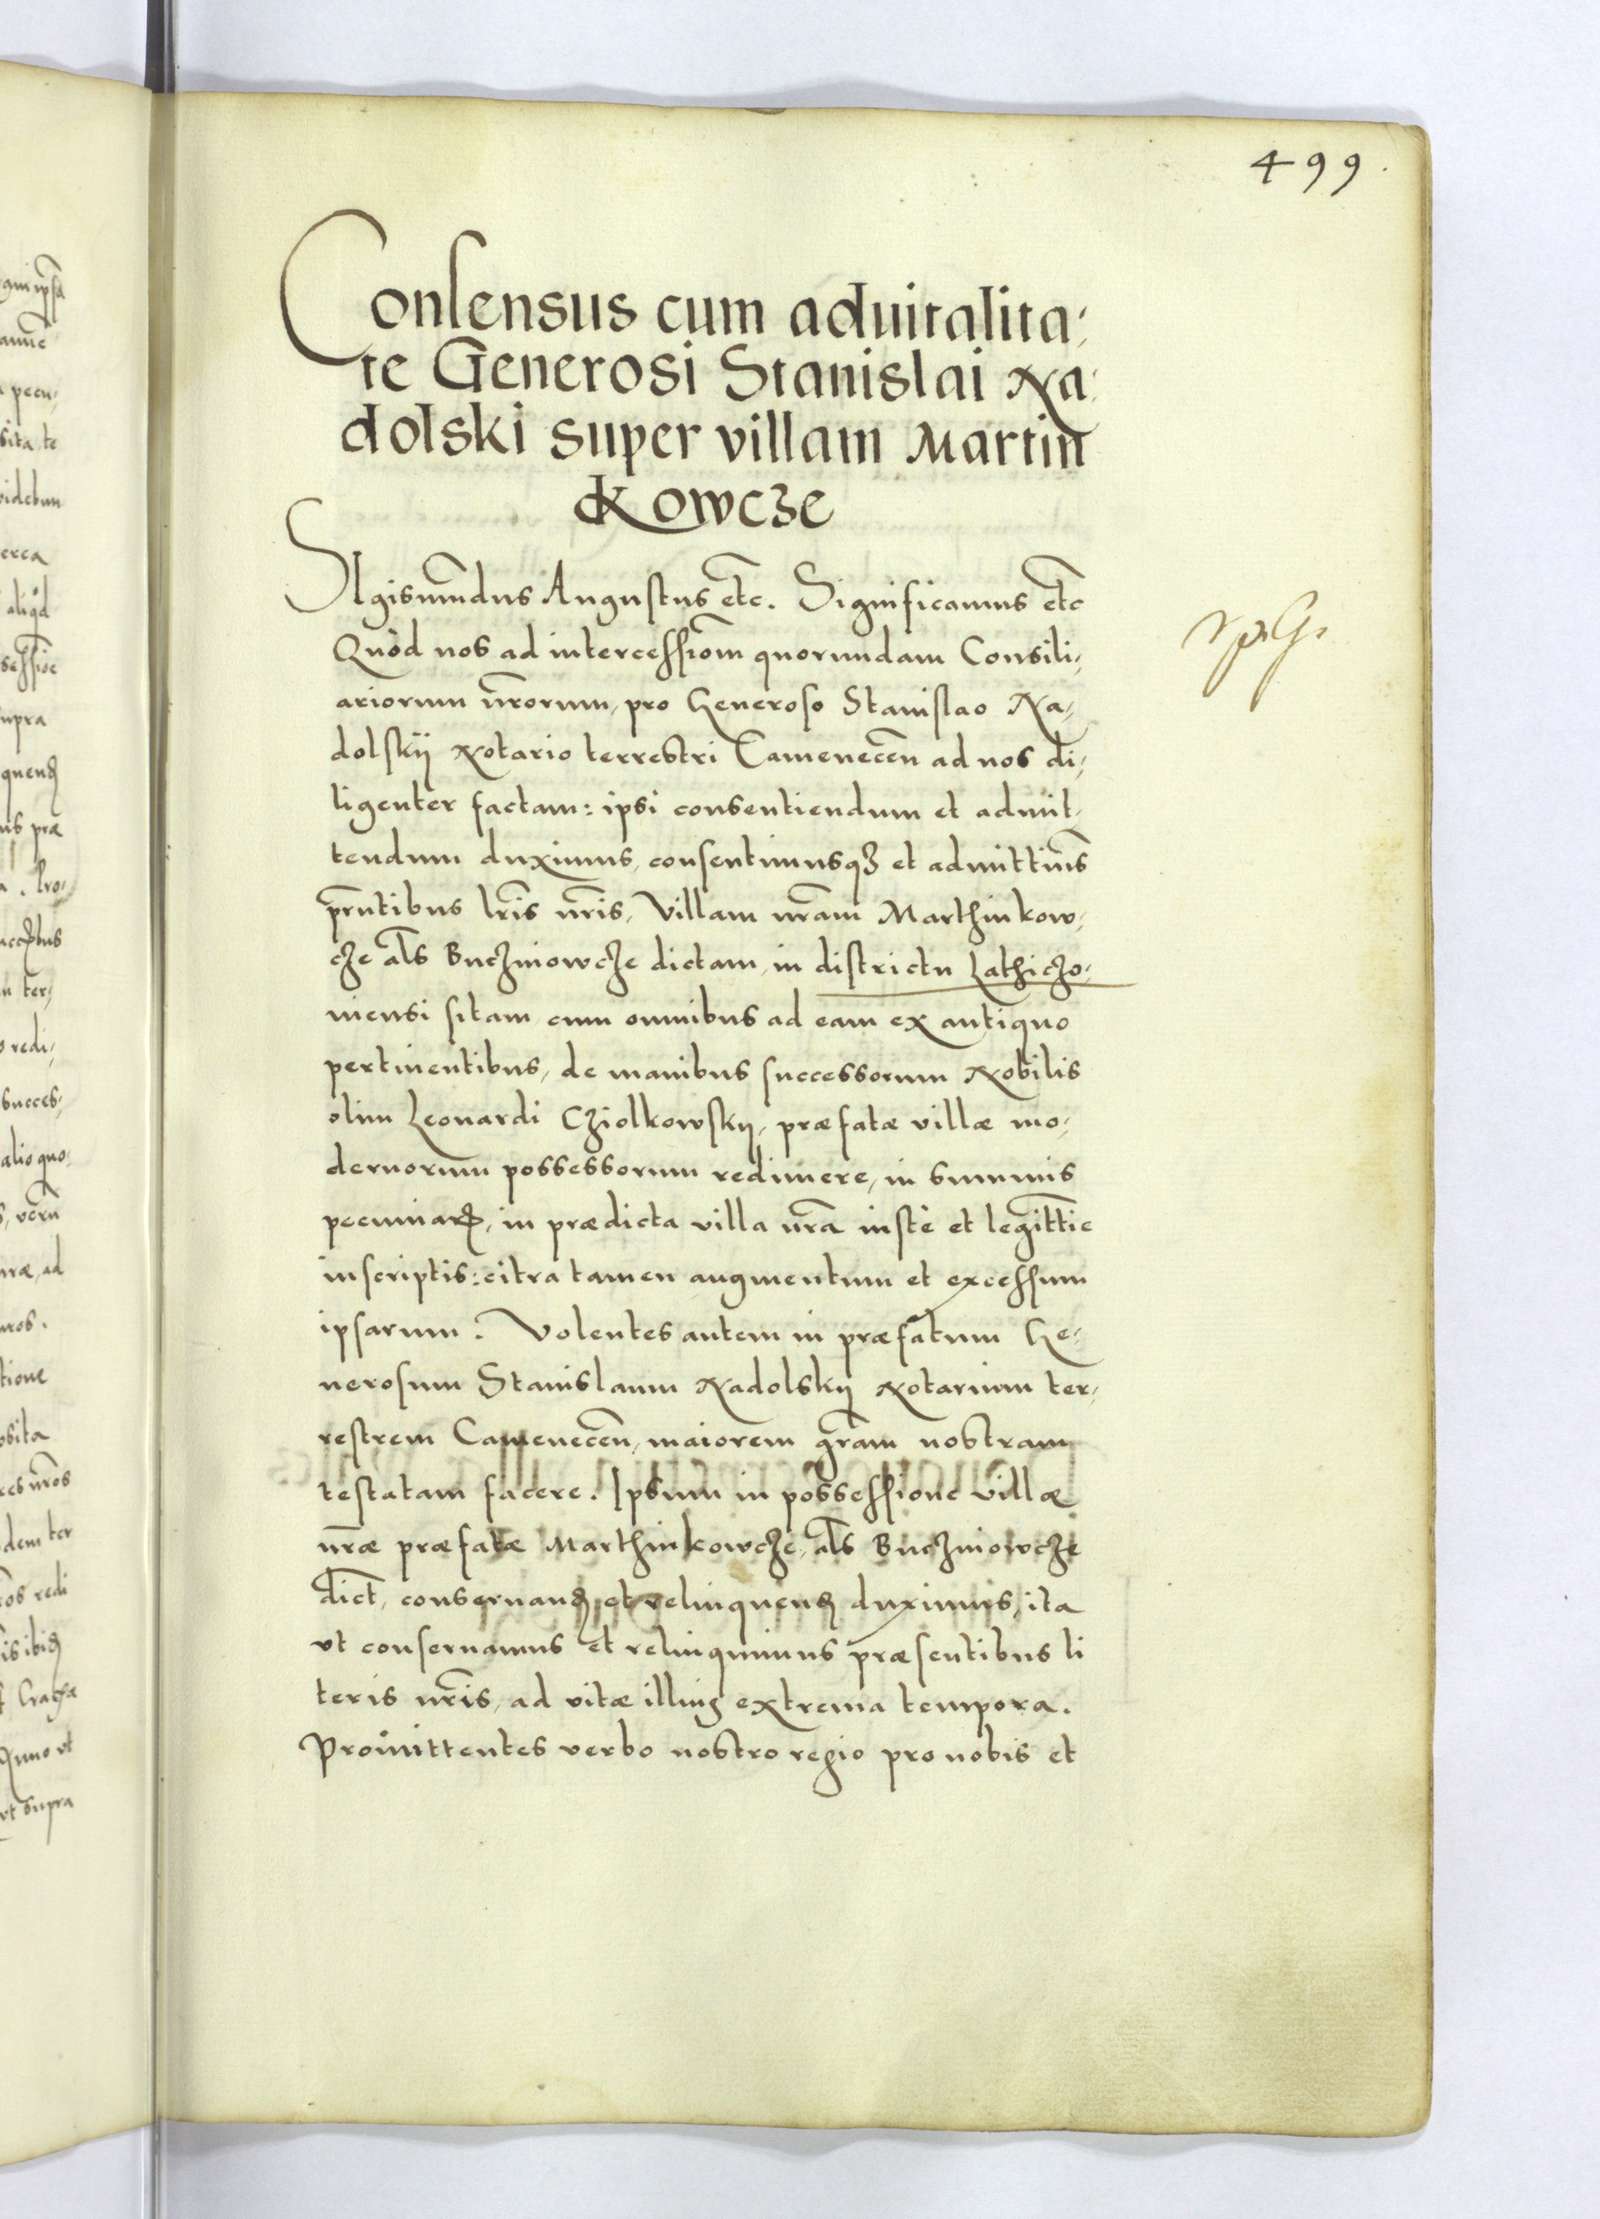 499.
Consensus cum aduitalita⸗
te Generosi Stanislai Na⸗
dolski super villam Martin
kowcze
SIgismu̅dus Augustus et̅c. Significamus et̅c
Quòd nos ad intercessio̅m quorundam Consili⸗
ariorum n̅rorum, pro Generoso Stanislao Na⸗
dolskÿ Notario terrestri Camenece̅n ad nos di⸗
ligenter factam: ipsi consentiendum et admit⸗
tendum duximus, consentimusqꝫ et admittim̅s
pn̅tibus lr̅is nr̅is, Villam nr̅am Marthinkow⸗
cze al̅s Buczniowcze dictam, in districtu Lathiczo⸗
niensi sitam cum omnibus ad eam ex antiquo
pertinentibus, de manibus successorum Nobilis
olim Leonardi Cziolkowskij, præfatæ villæ mo⸗
dernorum possessorum redimere, in summis
pecuniaꝝ, in prædicta villa nr̅a iustè et legitti̅e
inscriptis: citra tamen augmentum et excessum
ipsarum. Volentes autem in præfatum Ge⸗
nerosum Stanislaum Nadolskij Notarium ter⸗
restrem Camenece̅n, maiorem gr̅am nostram
testatam facere. Ipsum in possessione villæ
nr̅æ præfatæ Marthinkowcze, al̅s Buczniowcze
dict̅, conseruanđ et relinquenđ duximus, ita
vt conseruamus et relinquimus præsentibus li
teris nr̅is, ad vitæ illiuꝰ extrema tempora.
Promittentes verbo nostro regio pro nobis et